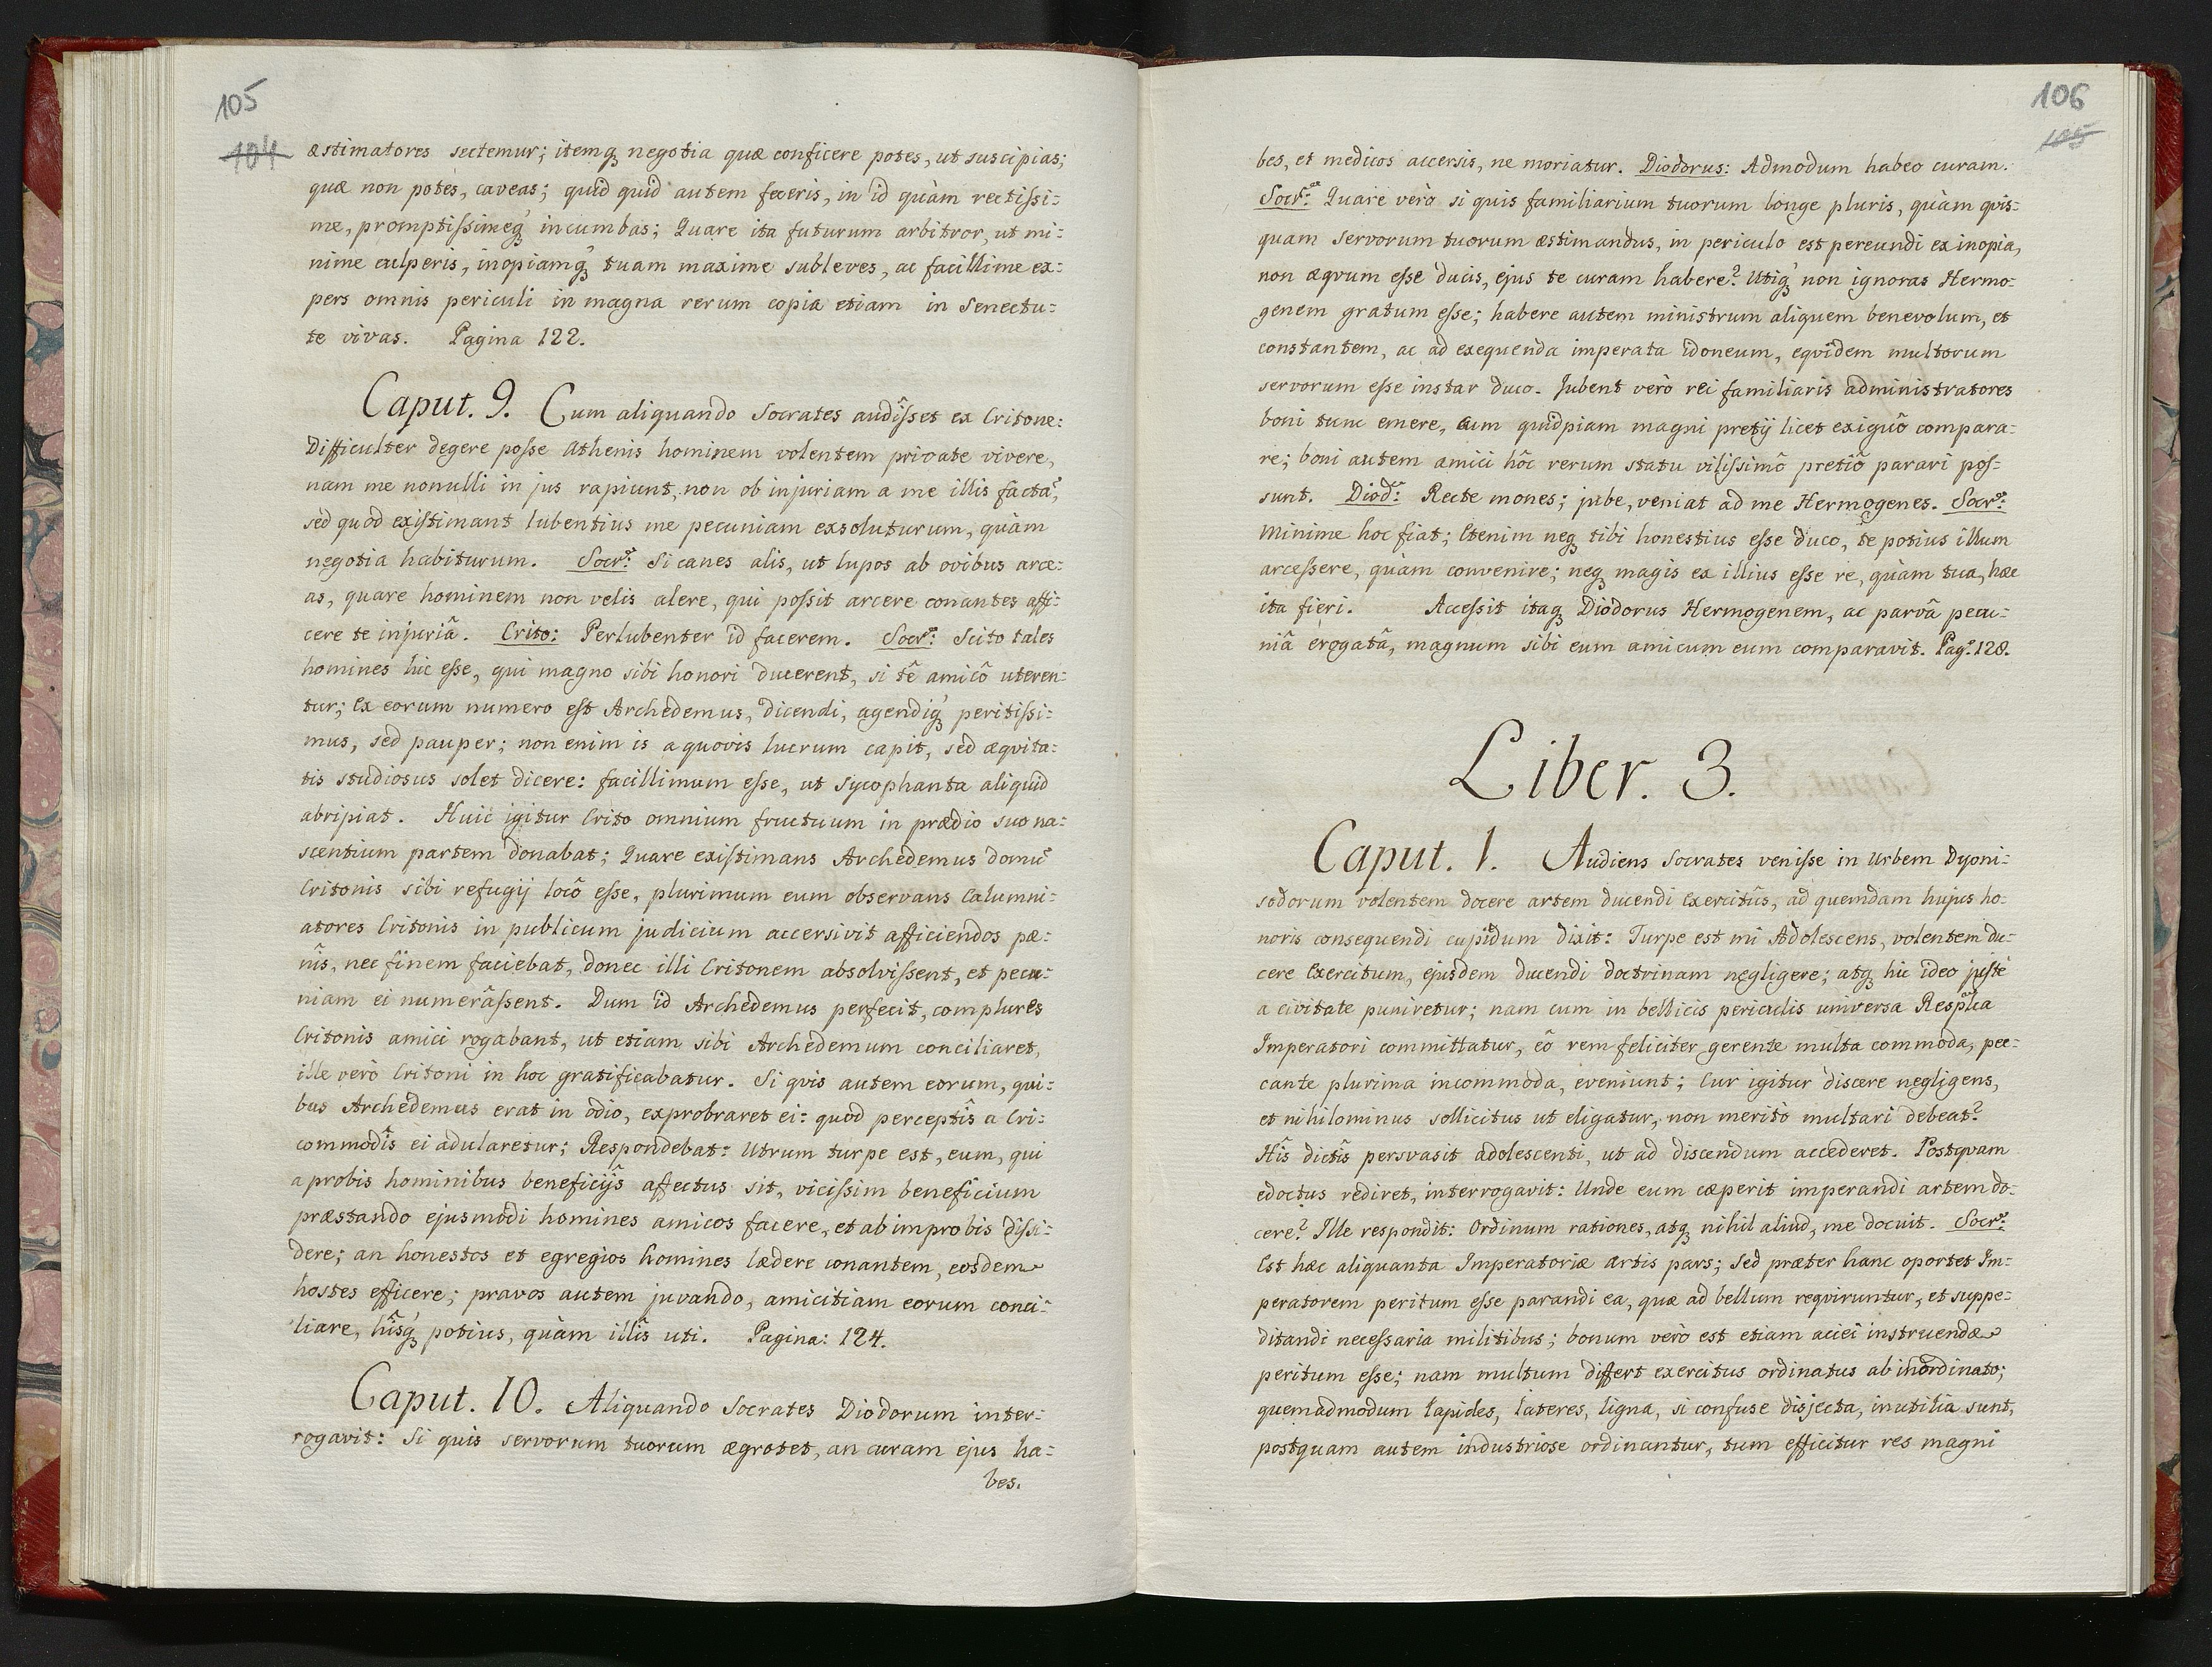 105
104
æstimatores sectemur; itemq́ negotia quæ conficere potes, ut suscipias;
quæ non potes, caveas; quid quid autem feceris, in id quàm rectissi:
me, promptissimeq́ incumbas; Quare ita futurum arbitror, ut mi:
nime culperis, inopiamq́ tuam maxime subleves, ac facillime ex:
pers omnis periculi in magna rerum copia etiam in senectu:
te vivas. Pagina 122.
Caput. 9. Cum aliquando Socrates audîsset ex Critone:
Difficulter degere posse Athenis hominem volentem private vivere,
nam me nonulli in jus rapiunt, non ob injuriam a me illis factã,
sed quod existimant lubentius me pecuniam exsoluturum, quàm
negotia habiturum. Socr: Si canes alis, ut lupos ab ovibus arce:
as, quare hominem non velis alere, qui possit arcere conantes affi:
cere te injuriâ. Crito: Perlubenter id facerem. Socr: Scito tales
homines hic esse, qui magno sibi honori ducerent, si tê amicô uteren:
tur; Ex eorum numero est Archedemus, dicendi, agendiq́ peritissi:
mus, sed pauper; non enim is a quovis lucrum capit, sed æqvita:
tis studiosus solet dicere: facillimum esse, ut sycophanta aliquid
abripiat. Huic igitur Crito omnium fructuum in prædio suo na:
scentium partem donabat; Quare existimans Archedemus domũ
Critonis sibi refugij locô esse, plurimum eum observans Calumni:
atores Critonis in publicum judicium accersivit afficiendos pæ:
nîs, nec finem faciebat, donec illi Critonem absolvissent, et pecu:
niam ei numerâssent. Dum id Archedemus perfecit, complures
Critonis amici rogabant, ut etiam sibi Archedemum conciliaret,
ille verò Critoni in hoc gratificabatur. Si qvis autem eorum, qui:
bus Archedemus erat in odio, exprobraret ei: quod perceptîs a Cri:
commodîs ei adularetur; Respondebat: Utrum turpe est, eum, qui
a probis hominibus beneficijs affectus sit, vicissim beneficium
præstando ejusmodi homines amicos facere, et ab improbis dissi:
dere; an honestos et egregios homines lædere conantem, eosdem
hostes efficere; pravos autem juvando, amicitiam eorum conci:
liare, hîsq́ potius, quàm illîs uti. Pagina: 124.
Caput. 10. Aliquando Socrates Diodorum inter:
rogavit: Si quis servorum tuorum ægrotet, an curam ejus ha:
bes.
106
105
bes, et medicos accersis, ne moriatur. Diodorus: Admodum habeo curam.
Socr: Quare verò si quis familiarium tuorum longe pluris, quàm qvis:
quam servorum tuorum æstimandus, in periculo est pereundi ex inopia,
non æqvum esse ducis, ejus te curam habere? Utiq́ non ignoras Hermo:
genem gratum esse; habere autem ministrum aliquem benevolum, et
constantem, ac ad exequenda imperata idoneum, eqvidem multorum
servorum esse instar duco. Jubent verò rei familiaris administratores
boni tunc emere, cum quidpiam magni pretij licet exiguô compara:
re; boni autem amici hôc rerum statu vilissimô pretiô parari pos:
sunt. Diod: Recte mones; jube, veniat ad me Hermogenes. Socr:
Minime hoc fiat; Etenim neq́ tibi honestius esse duco, te potius illum
arcessere, quàm convenire; neq́ magis ex illius esse re, quàm tua, hæc
ita fieri. Accessit itaq́ Diodorus Hermogenem, ac parvâ pecu:
niâ erogatâ, magnum sibi eum amicum eum comparavit. Pag: 128.
Liber. 3.
Caput. 1. Audiens Socrates venisse in Urbem Dyoni:
sodorum volentem docere artem ducendi Exercitûs, ad quemdam hujus ho:
noris consequendi cupidum dixit: Turpe est mi Adolescens, volentem du:
cere Exercitum, ejusdem ducendi doctrinam negligere; atq́ hic ideo juste
a civitate puniretur; nam cum in bellicis periculis universa Resplca
Imperatori committatur, eô rem feliciter gerente multa commoda, pec:
cante plurima incommoda, eveniunt; Cur igitur discere negligens,
et nihilominus sollicitus ut eligatur, non meritò multari debeat?
Hîs dictîs persvasit adolescenti, ut ad discendum accederet. Postqvam
edoctus rediret, interrogavit: Unde eum cæperit imperandi artem do:
cere? Ille respondit: Ordinum rationes, atq́ nihil aliud, me docuit. Socr:
Est hæc aliquanta Imperatoriæ artis pars; sed præter hanc oportet Im:
peratorem peritum esse parandi ea, quæ ad bellum reqviruntur, et suppe:
ditandi necessaria militibus; bonum verò est etiam aciei instruendæ
peritum esse; nam multum differt exercitus ordinatus ab inordinato;
quemadmodum lapides, lateres, ligna, si confuse disjecta, inutilia sunt,
postquam autem industriose ordinantur, tum efficitur res magni